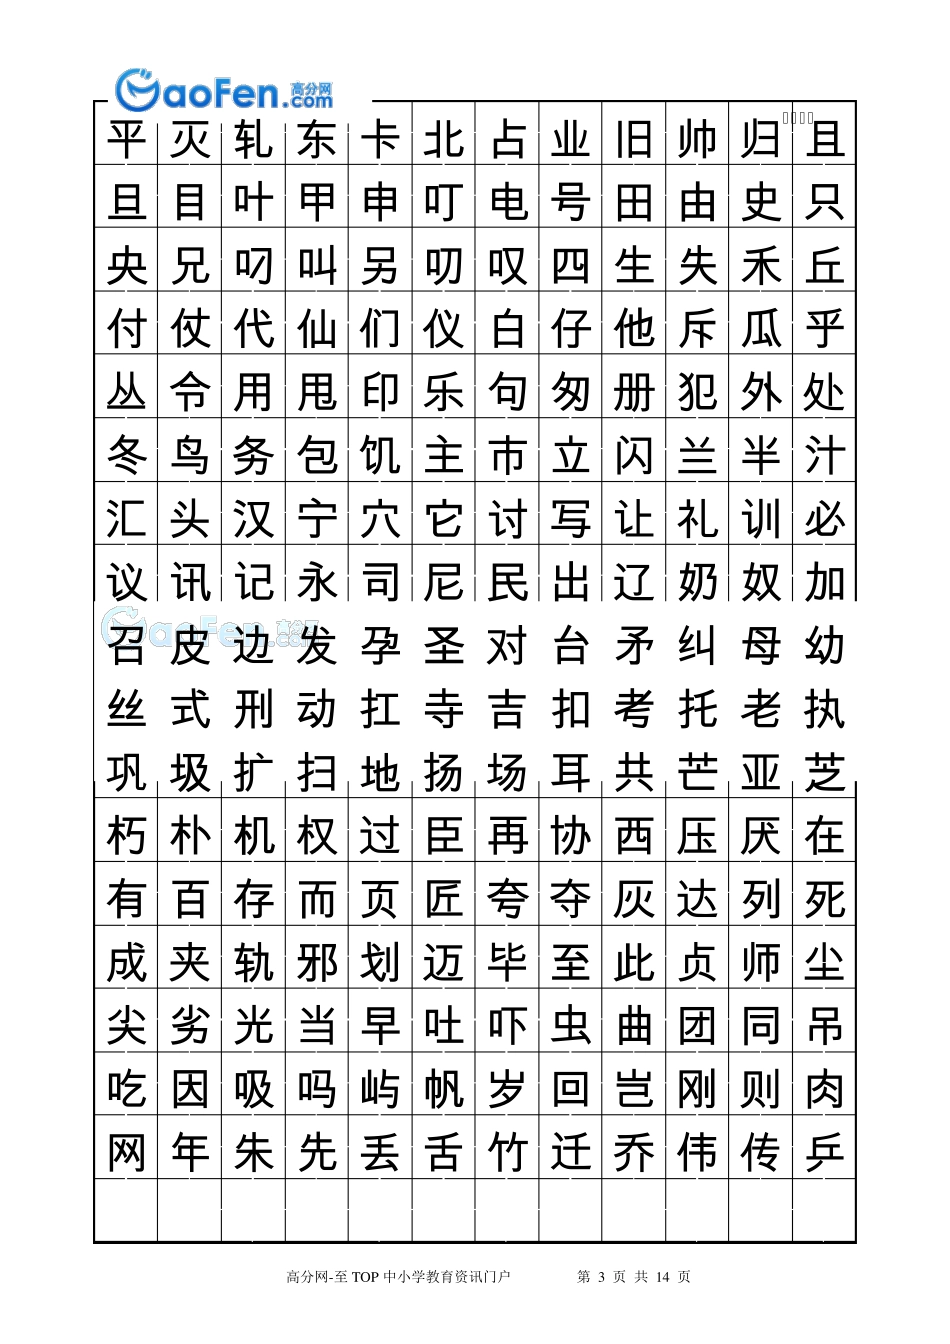 GaoFen 高分网 .com
平 灭 轧 东 卡 北 占 业 旧 帅 归 且
旦 目 叶 甲 申 叮 电 号 田 由 史 只
央 兄 叼 叫 另 叨 叹 四 生 失 禾 丘
付 仗 代 仙 们 仪 白 仔 他 斥 瓜 乎
丛 令 用 甩 印 乐 句 匆 册 犯 外 处
冬 鸟 务 包 饥 主 市 立 闪 兰 半 汁
汇 头 汉 宁 穴 它 讨 写 让 礼 训 必
议 讯 记 永 司 尼 民 出 辽 奶 奴 加
GaoFen 高分网 .com
召 皮 边 发 孕 圣 对 台 矛 纠 母 幼
丝 式 刑 动 扛 寺 吉 扣 考 托 老 执
巩 圾 扩 扫 地 扬 场 耳 共 芒 亚 芝
朽 朴 机 权 过 臣 再 协 西 压 厌 在
有 百 存 而 页 匠 夸 夺 灰 达 列 死
成 夹 轨 邪 划 迈 毕 至 此 贞 师 尘
尖 劣 光 当 早 吐 吓 虫 曲 团 同 吊
吃 因 吸 吗 屿 帆 岁 回 岂 刚 则 肉
网 年 朱 先 丢 舌 竹 迁 乔 伟 传 乒
高分网-至 TOP 中小学教育资讯门户 第 3 页 共 14 页